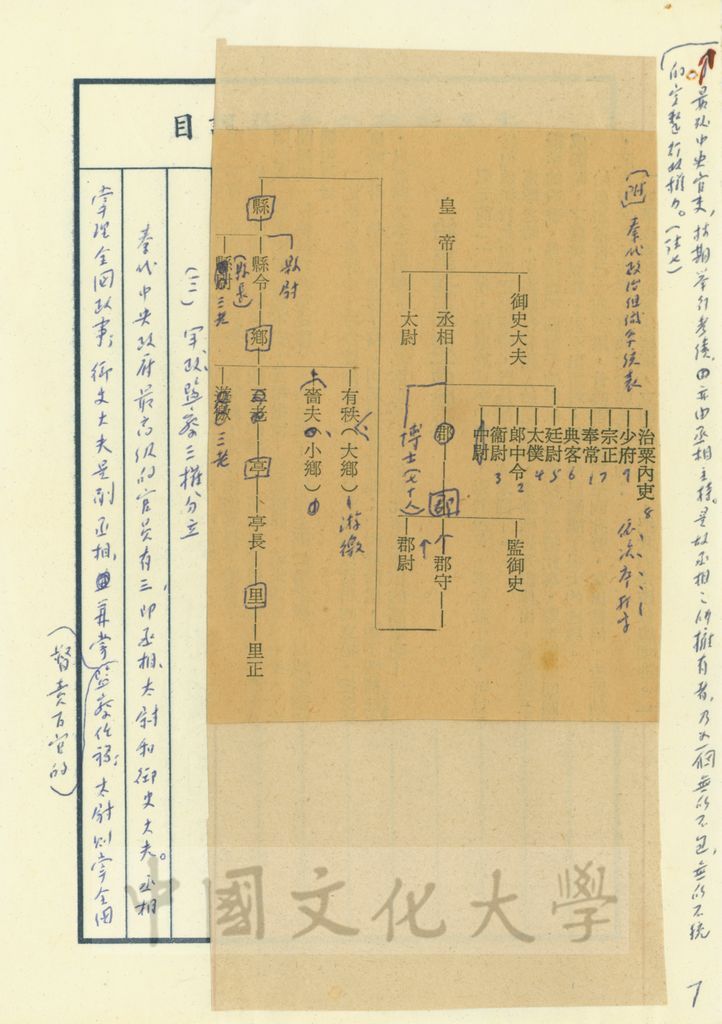 最高中央官吏,按期舉行考績,由丞相主持。是故丞相之所擁有者,乃為一個無所不包,無所不統
的完整行政權力。(註七)
(附)秦代政治組織系統表
皇帝
御史大夫
丞相
太尉
治粟內吏 8
少府 9
宗正 7
奉常 1
典客 6
廷尉 5
太僕 4
郎中令 2
衞尉 3
中尉
依次序排字
博士(七十人)
郡
監御史
郡守
郡尉
縣
縣尉
縣令
(縣長)
三老
鄉
有秩(大鄉)
游徼
嗇夫(小鄉)
三老
亭
亭長
里
里正
目
(三)軍政監察三權分立
秦代中央政府最高級的官員有三,即丞相、太尉和御史大夫。丞相
掌理全國政事;御史大夫是副丞相,並掌監察任務;太尉則掌全國
(督責百官的)
中國文化大學
7